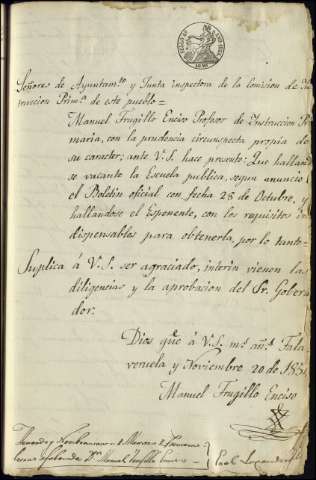 Señores de Ayuntamto y Junta inspectora de la Comision de Ins
truccion Prima de este pueblo =
Manuel Trugillo Enciso Profesor de Instruccion Pri
maria, con la prudencia circunspecta propia de
su caracter; ante V.S. hace presente: Que hallan
se vacante la Escuela publica, segun anuncio
el Boletin oficial con fecha 28 de Octubre, y
hallandose el Esponente, con los requisitos in
dispensables para obtenerla, por lo tanto
Suplica á V.S. ser agraciado, interin vienen las
diligencias y la aprobacion del Sr. Goberna
dor.
Dios gue á V.S. ms. ans. Tala
veruela y Noviembre 20 de 185
Manuel Trugillo Enciso